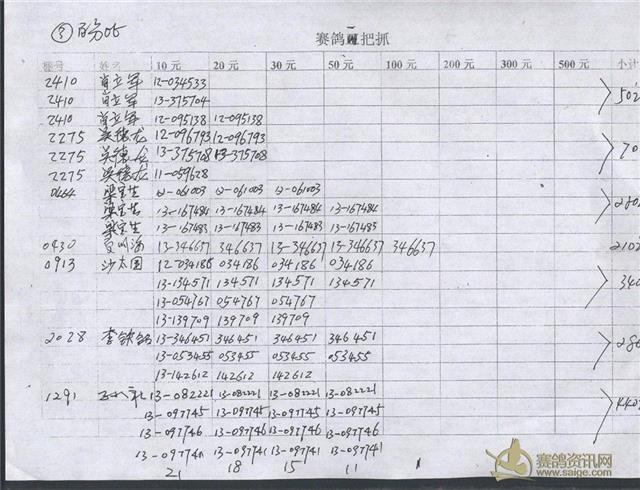 赛鸽 把抓
棚号 姓名 10元 20元 30元 50元 100元 200元 300元 500元 小计
2410 肖立军 12-034533
2410 肖立军 13-375704
2410 肖立军 12-095138 12-095138
2275 吴德龙 12-096793 12-096793
2275 吴德龙 13-375708 13-375708
2275 吴德龙 11-059628
0464 梁宝生 12-061003 12-061003 12-061003
梁宝生 13-167484 13-167484 13-167484 13-167484
梁宝生 13-167483 13-167483 13-167483 13-167483
0430 13-346637 346637 13-346637 13-346637 346637
0913 沙太国 12-034186 034186 034186 034186
13-134571 134571 134571 134571
13-054767 054767 054767
13-139709 139709 139709
2028 李 13-346451 346451 346451 346451
13-053455 053455 053455 053455
13-142612 142612 142612
1291 13-082221 13-082221 13-082221 13-082221
13-097745 13-097745 13-097745 13-097745
13-097746 13-097746 13-097746 13-097746
13-097741 13-097741 13-097741 13-097741
21 18 15 11
赛鸽资讯网
www.saige.com